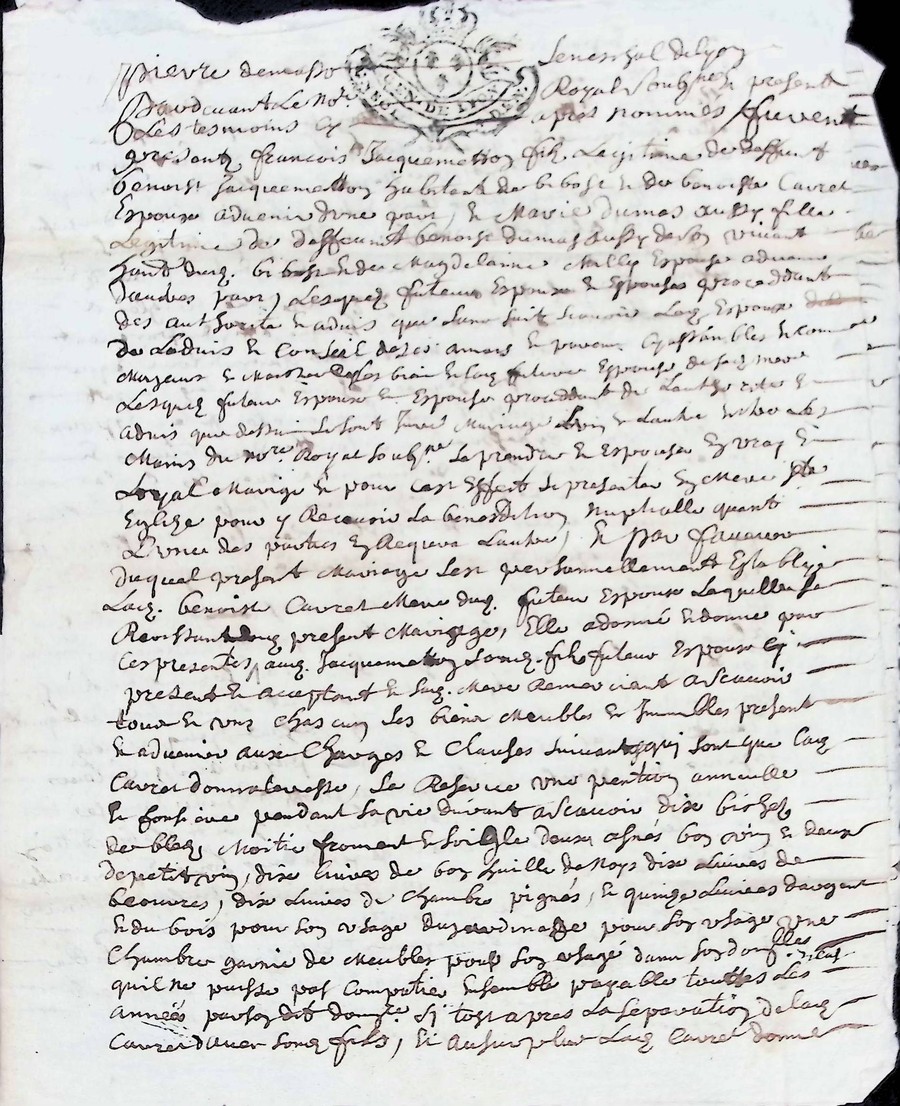 pierre demasso senechal de lyon
Pardevant Le No.re Royal soubs.ne et present
Les tesmoins cy apres nommes furent
presents, françois Jacquemetton fils Legitime de deffunt
benoist Jacquemetton habitant de bibost et de benoiste Carret
Espouse advenir d'une part, et Marie dumas aussy fille
Legitime de deffeunt benoist dumas aussy de son vivant
hant dud. bibost et de Magdelainne Milly Espouse advenir
d'autres part, Lesquels futeur Espoux et Espouse proceddant
des authorité et advis que sans suit scavoir Led. Espoux
de Ladvis et Conseil de ses amis et parens Cy assambles
Majeurs et Maistre de ses biens et lad. future Espouse de sad. mere
Lesquels futeur Espoux et Espouse proceddant de Lauthorité et
advis que dessus se sont Jures Mariage Lun et Lautre entre les
Mains du no.re Royal soubs.ne se prendre et espouser En vray et
Loyal Mariage et pour cest Effect se presenter En Mere ste
Eglize pour y Recevoir La benediction Nuptialle quant
Lune des parties En Requera Lautre, Et par faveur
duquel present Mariage sest personnellement Establye
Lad. benoiste Carret Mere dud. futeur Espoux Laquelle se
present Mariage, Elle a donné et donne par
ces presentes aud. Jacquemetton son d. fils futeur Espoux cy
present et acceptant et sad. Mere Remerciant a scavoir
tous et uns chascun ses biens Meubles et Immeubles present
et advenir aux Charges et Clauses suivantes qui sont que lad.
Carret donnateresse, se Reserve une pention annuelle
et fonsiere pendant sa vie durant a scavoir dix bichets
de bled, Moitié froment et soilgle deux asnés bon vin et deux
de petit vin, dix livres de bon huille de Noys dix Livres de
beourres, dix Livres de Chambre pignés, et quinze Livres dargent
et du bois pour son usage du jardinage pour son usage une
Chambre garnie de Meubles pour son usage dans son domfle
quil ne puisse pas Compatir Ensemble payable touttes Les
années par son dit dom.re si tost apres La Separation de lad.
Carret d'avec son d. fils, Et au surplus Lad. Carret donne